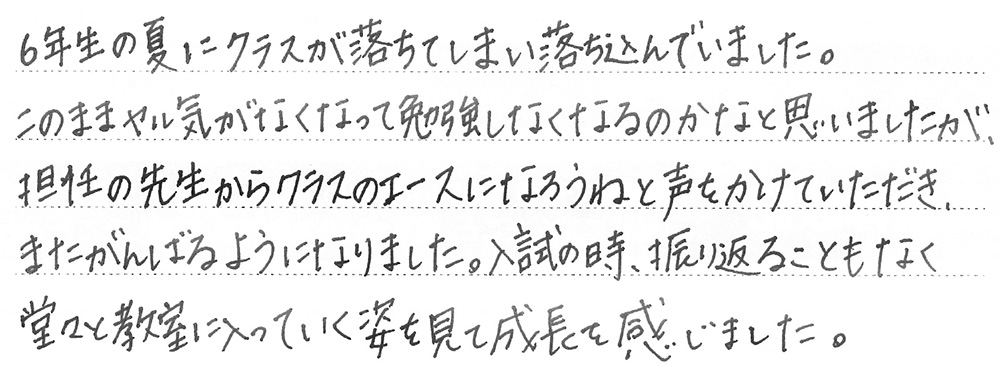 6年生の夏にクラスが落ちてしまい落ち込んでいました。
このままヤル気がなくなって勉強しなくなるのかなと思いましたが、
担任の先生からクラスのエースになろうねと声をかけていただき、
またがんばるようになりました。入試の時、振り返ることもなく
堂々と教室に入っていく姿を見て成長を感じました。